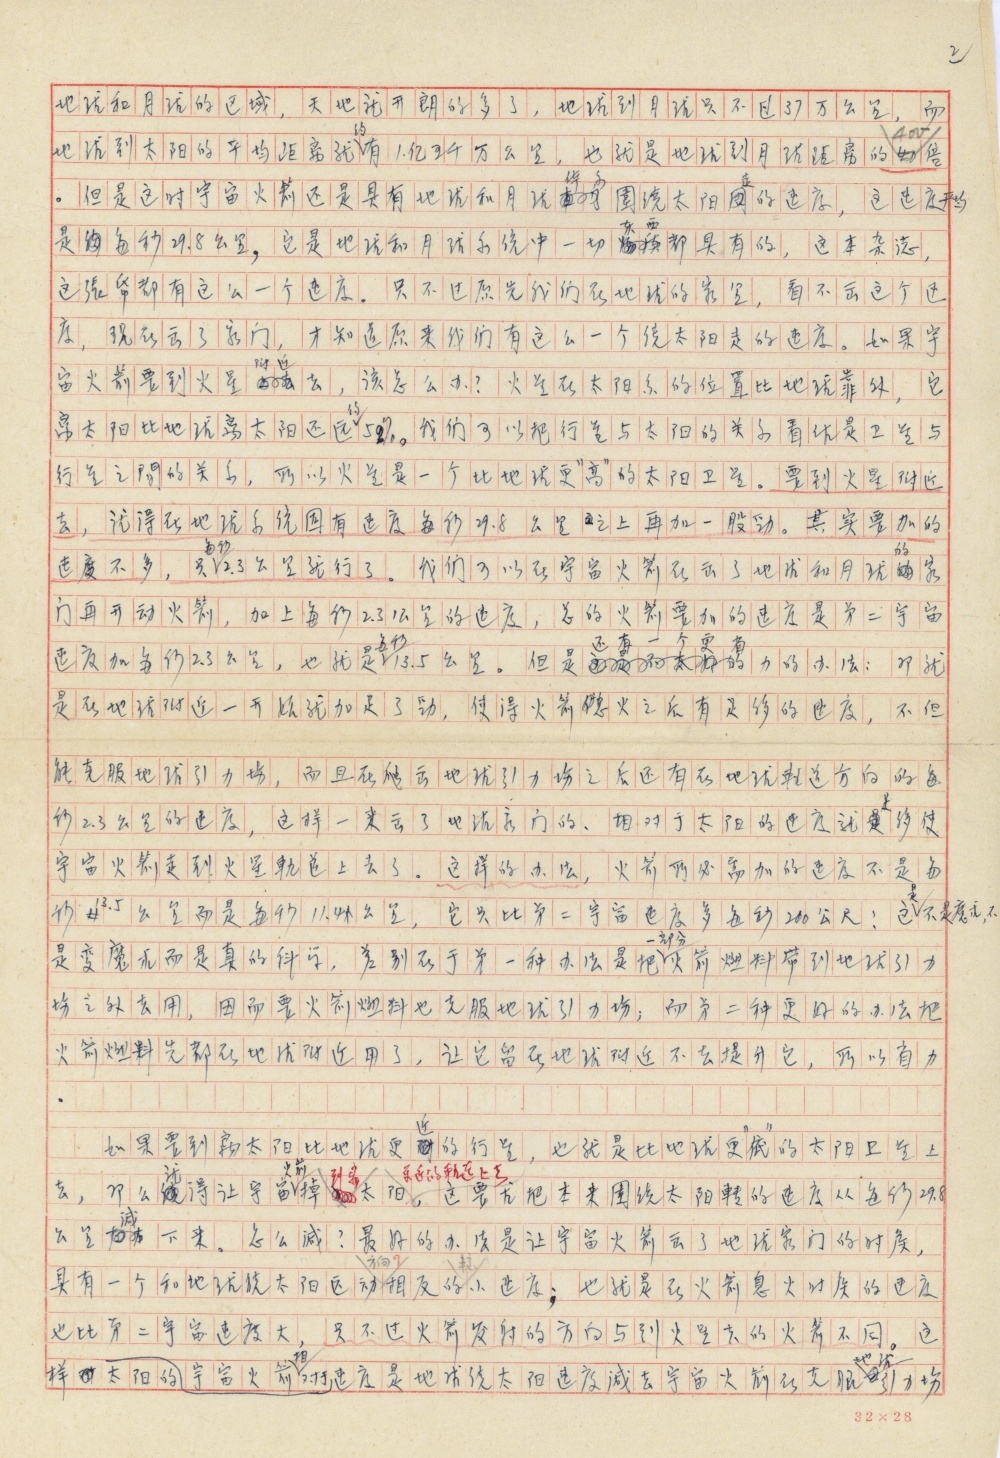 2
地球和月球的区域，天地就开朗的多了，地球到月球只不过37万公里，而
地球到太阳的平均距离就约有1.亿5千万公里，也就是地球到月球距离的400倍
。但是这时宇宙火箭还是具有地球和月球围绕太阳的速度，这速度平均
是每秒29.8公里，它是地球和月球系统中一切东西都具有的，这本杂志，
这张纸都有这么一个速度。只不过原先我们在地球的家里，看不出这个速
度，现在出了家门，才知道原来我们有这么一个绕太阳走的速度。如果宇
宙火箭要到火星附近去，该怎么办？火星在太阳系的位置比地球靠外，它
离太阳比地球离太阳还远约50%。我们可以把行星与太阳的关系看作是卫星与
行星之間的关系，所以火星是一个比地球更“高”的太阳卫星。要到火星附近
去，就得在地球系统固有速度每秒29.8公里之上再加一股劲。其实要加的
速度不多，只每秒2.3公里就行了。我们可以在宇宙火箭在出了地球和月球的家
门再开动火箭，加上每秒2.3公里的速度，总的火箭要加的速度是第二宇宙
速度加每秒2.3公里，也就是每秒13.5公里。但是还有一个更有力的办法：即就
是在地球附近一开始就加足了劲，使得火箭熄火之后有足够的速度，不但
能克服地球引力場，而且在脱出地球引力場之后还有在地球轨道方向的每
秒2.3公里的速度，这样一来出了地球家门的、相对于太阳的速度就足够使
宇宙火箭走到火星轨道上去了。这样的办法，火箭所必需加的速度不是每
秒13.5公里而是每秒11.4公里，它只比第二宇宙速度多每秒200公尺！这不是魔术，不
是变魔术而是真的科学，差别在于第一种办法是把一部分火箭燃料带到地球引力
場之外去用，因而要火箭燃料也克服地球引力場；而第二种更好的办法把
火箭燃料先都在地球附近用了，让它留在地球附近不去提升它，所以省力
。
如果要到离太阳比地球更近的行星，也就是比地球更“低”的太阳卫星上
去，那么就得让宇宙火箭掉到离太阳更近的轨道上去。这要先把本来围绕太阳转的速度从每秒29.8
公里减下来。怎么减？最好的办法是让宇宙火箭出了地球家门的时候，
具有一个和地球绕太阳运动方向相反的小速度；也就是在火箭熄火时候的速度
也比第二宇宙速度大，只不过火箭发射的方向与到火星去的火箭不同。这
样太阳的宇宙火箭相对速度是地球绕太阳速度减去宇宙火箭在克服地球引力場
32×28